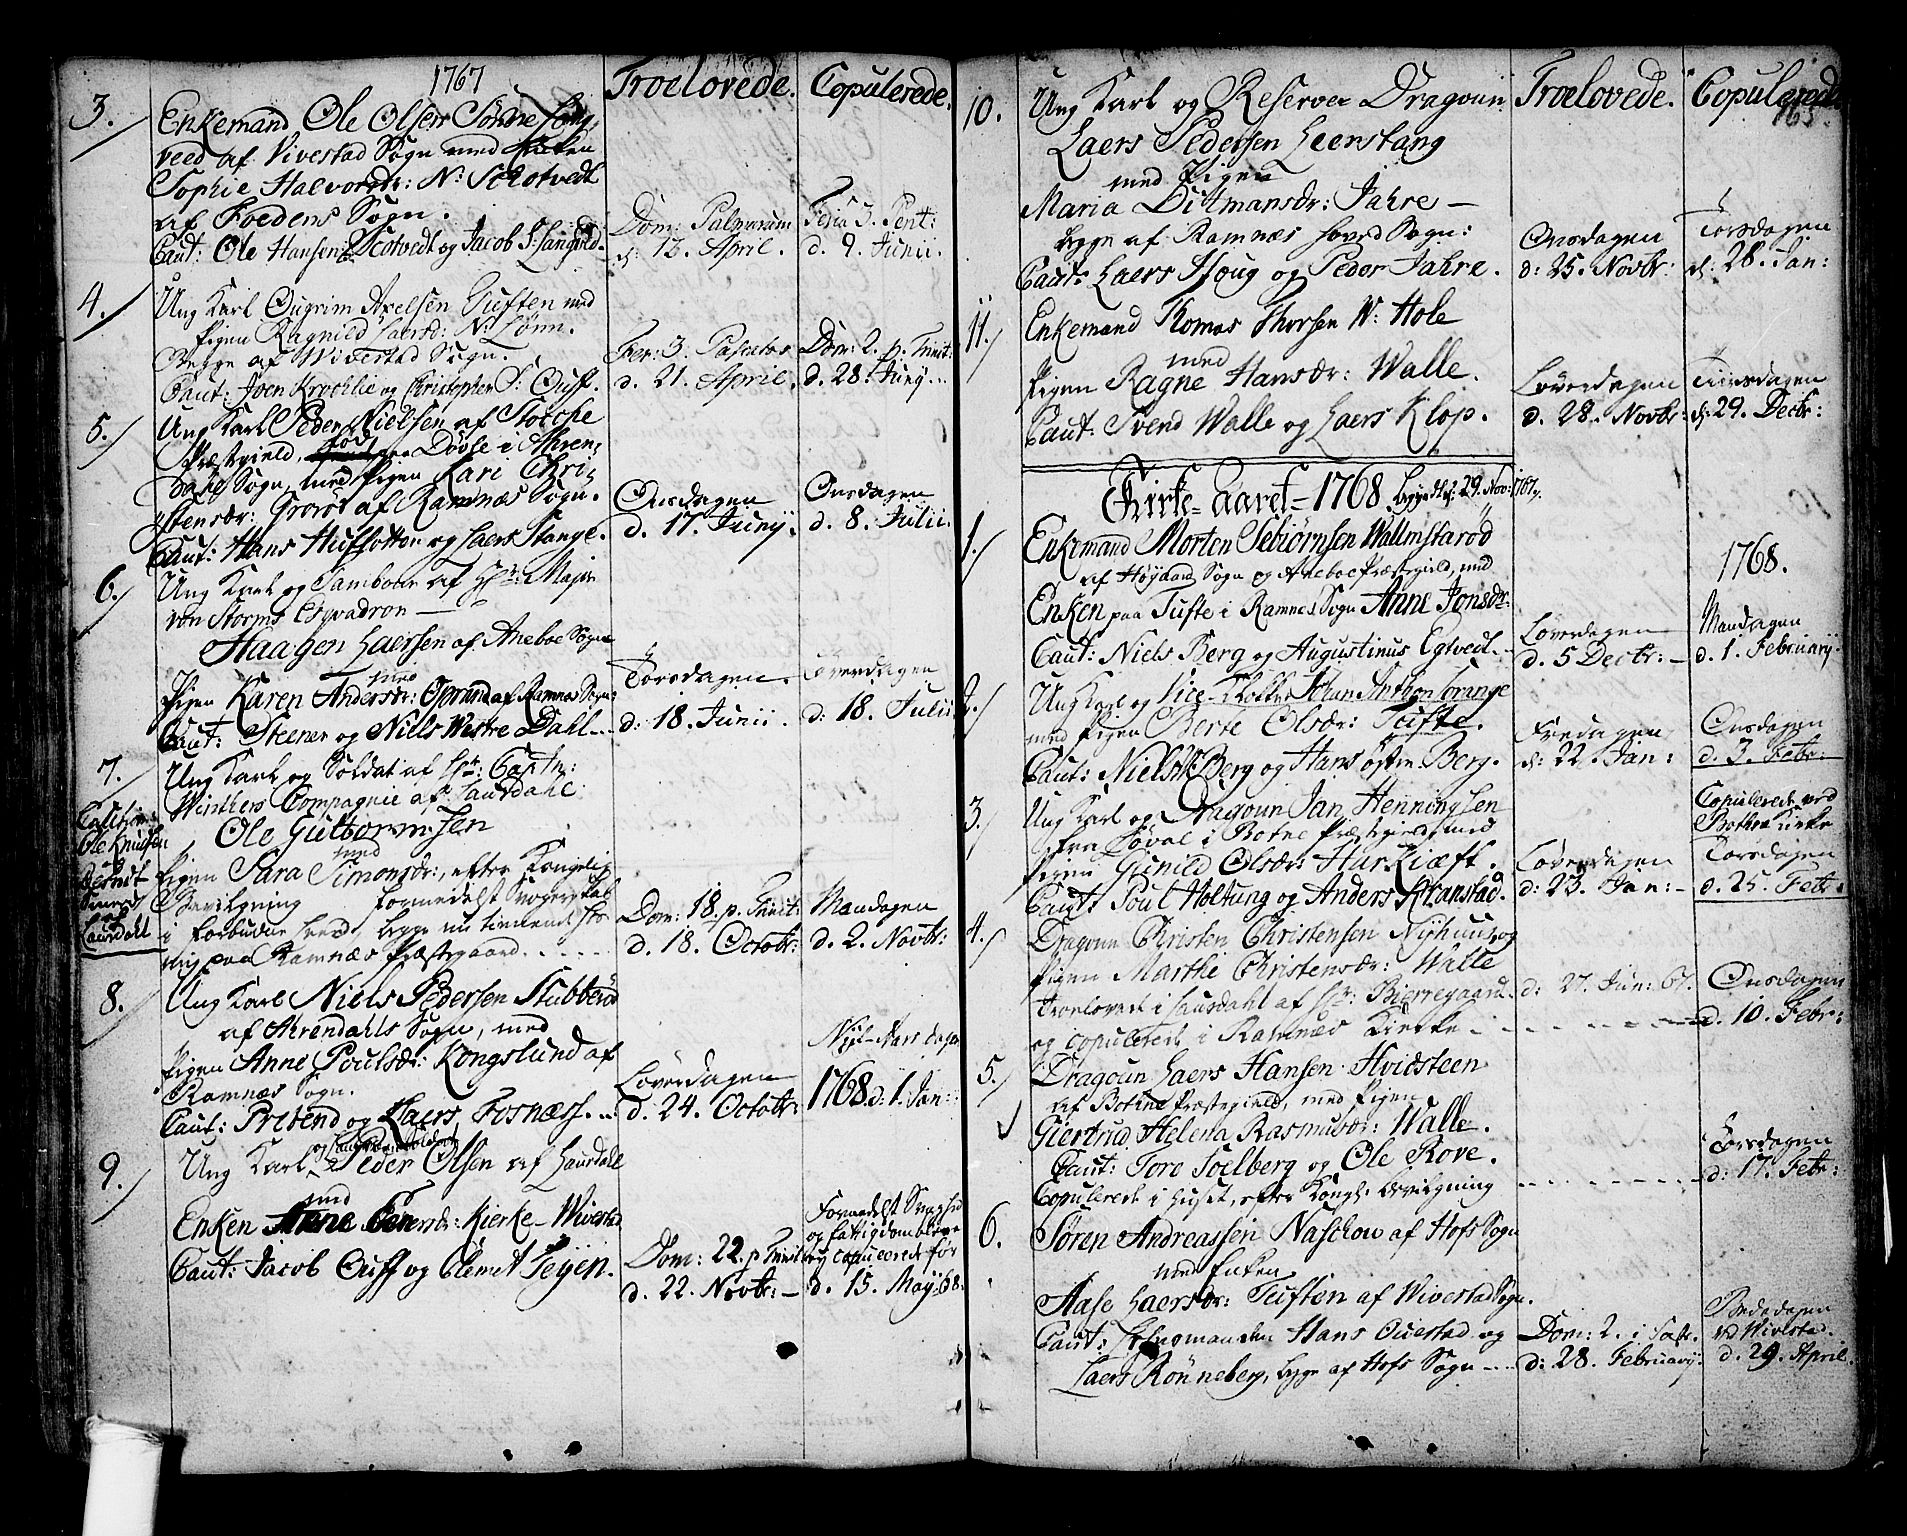 1767
Troelovede.
Copulerede.
3.
Enkemand Ole Olsen Søndre Lang
veed af Vivestad Sogn med Enken
Sophie Halvorsdr: N: Schotvedt
af Foedens Sogn.
Caut: Ole Hansen Scotvedt og Jacob S: Langved.
Dom: Palmarum
d. 12. April.
Feria 3. Pent:
d. 9. Junii.
4.
Ung Karl Gugrim Axelsen Tuften med
Pigen Ragnild Laersdr: N: Lønn.
Begge af Wivestad Sogn.
Caut: Joen Krochlie og Christopher S: Cuff.
Fer: 3. Paschatos
d. 21. April.
Dom: 2. p. Trinit:
d. 28. Junij.
5.
Ung Karl Peder Nielsen af Stocke
Præstegield, fød Døvle i Ahren-
dahl Sogn, med Pigen Kari Chri-
stensdr: Grorød af Ramnæs Sogn.
Caut: Hans Huflotten og Laers Stange.
Onsdagen
d. 17. Junij.
Onsdagen
d. 8. Julii.
6.
Ung Karl og Tambour af Hr: Major
von Storms Esqvadron
Haagen Laersen af Aneboe Sogn
med
Pigen Karen Andersdr: Oprand af Ramnæs Sogn:
Caut: Steener og Niels Westre Dahl
Torsdagen
d: 18. Junii.
Løverdagen
d: 18. Julii
7.
Ung Karl og Soldat af Hr: Captn:
Winthers Compagnie af Laurdahl
Ole Guttormsen
med
Pigen Sara Simonsdr:, efter Kongelig
Bevilgning formedelst Svogerskab
i forbudne Leed, begge nu tienende sted-
lig paa Ramnæs Præstegaard.
Cautin:
Ole Knudsen
og
Berndt
Smed
af
Laurdall
Dom: 18. p. Trinit:
d. 18. Octobr:
Mandagen
d. 2. Novbr:
8.
Ung Karl Niels Pedersen Stubberud
af Ahrendahls Sogn, med
Pigen Anne Poulsdr: Kongslund af
Ramnæs Sogn.
Caut: Prebend og Laers Fosnæss.
Løverdagen
d. 24. Octobr:
Nyt-Aars dagen
1768. d. 1. Jan:
9.
Ung Karl og Landværn Soldat Peder Olsen af Laurdall
med
Enken Anne Iversdr: Kierke-Wivestad
Caut: Jacob Cuff og Clemet Teijen.
Dom: 22. p. Trinit
d. 22. Novbr:
Formedelst Svaghed
og fattigdom bleve
ey copulerede før
d. 15. Maij: 68.
10.
Ung Karl og Reserve Dragoun
Laers Pedersen Leenstang
med Pigen
Maria Ditmansdr: Jahre
begge af Ramnæs hoved Sogn:
Caut: Laers Houg og Peder Jahre.
Troelovede.
Copulerede
165.
Onsdagen
d: 25. Novbr:
Torsdagen
d: 28. Jan:
11.
Enkemand Thomas Thorsen W: Hole
med
Pigen Ragne Hansdr: Walle.
Caut: Svend Walle og Laers Klop.
Løverdagen
d. 28. Novbr:
Tiirsdagen
d: 29. Decbr:
Kirke-Aaret-1768. begyndt d: 29. Nov: 1767.
1.
Enkemand Morten Tebiørnsen Wallmstarød
af Høyjord Sogn og Aneboe Præstegield, med
Enken paa Tufte i Ramnes Sogn Anne Jonsdr:
Caut: Niels Berg og Augustinus Egtvedt
Løverdagen
d. 5 Decbr:
1768.
Mandagen
d. 1. Februarij
2.
Ung Karl og Vice-Klokker Johan Anthon Lorange
med Pigen Berte Olsdr: Tufte.
Caut: Niels W. Berg og Hans østre Berg.
Fredagen
d: 22. Jan:
Onsdagen
d. 3. Febr:
3.
Ung Karl og Dragoun Jan Henningsen
fra Løval i Botne Præstegield med
Pigen Gunild Olsdr: Harkiæss.
Caut: Poul Holtung og Anders Kranstad.
Løverdagen
d: 23. Jan:
Copulerede ved
Bothne Kirke
Torsdagen
d. 25. Febr:
4.
Dragoun Christen Christensen Nyhuus og
Pigen Marthe Christensdr: Walle
Troelovede i Laurdahl af Hr: Bierregaard
og copulerede i Ramnæs Kierke
d: 27. Jun: 67.
Onsdagen
d. 10. Febr:
5.
Dragoun Laers Hansen Hvidsteen
af Bothne Præstegield, med Pigen
Giertrud Helena Rasmusdr: Walle.
Caut: Tore Soelberg og Ole Rove.
Copulerede i huset, efter Kongl: Bevilgning
Torsdagen
d: 17. Febr:
6.
Søren Andreassen Naschou af Hofs Sogn
med Enken
Aase Laersdr: Tuften af Wivestad Sogn.
Caut: Lehnsmanden Hans Ouestad og
Laers Rønneberg, begge af Hofs Sogn
Dom: 2. i Faste.
d: 28. Februarij:
Bededagen
ved Wivestad.
d. 29. April.